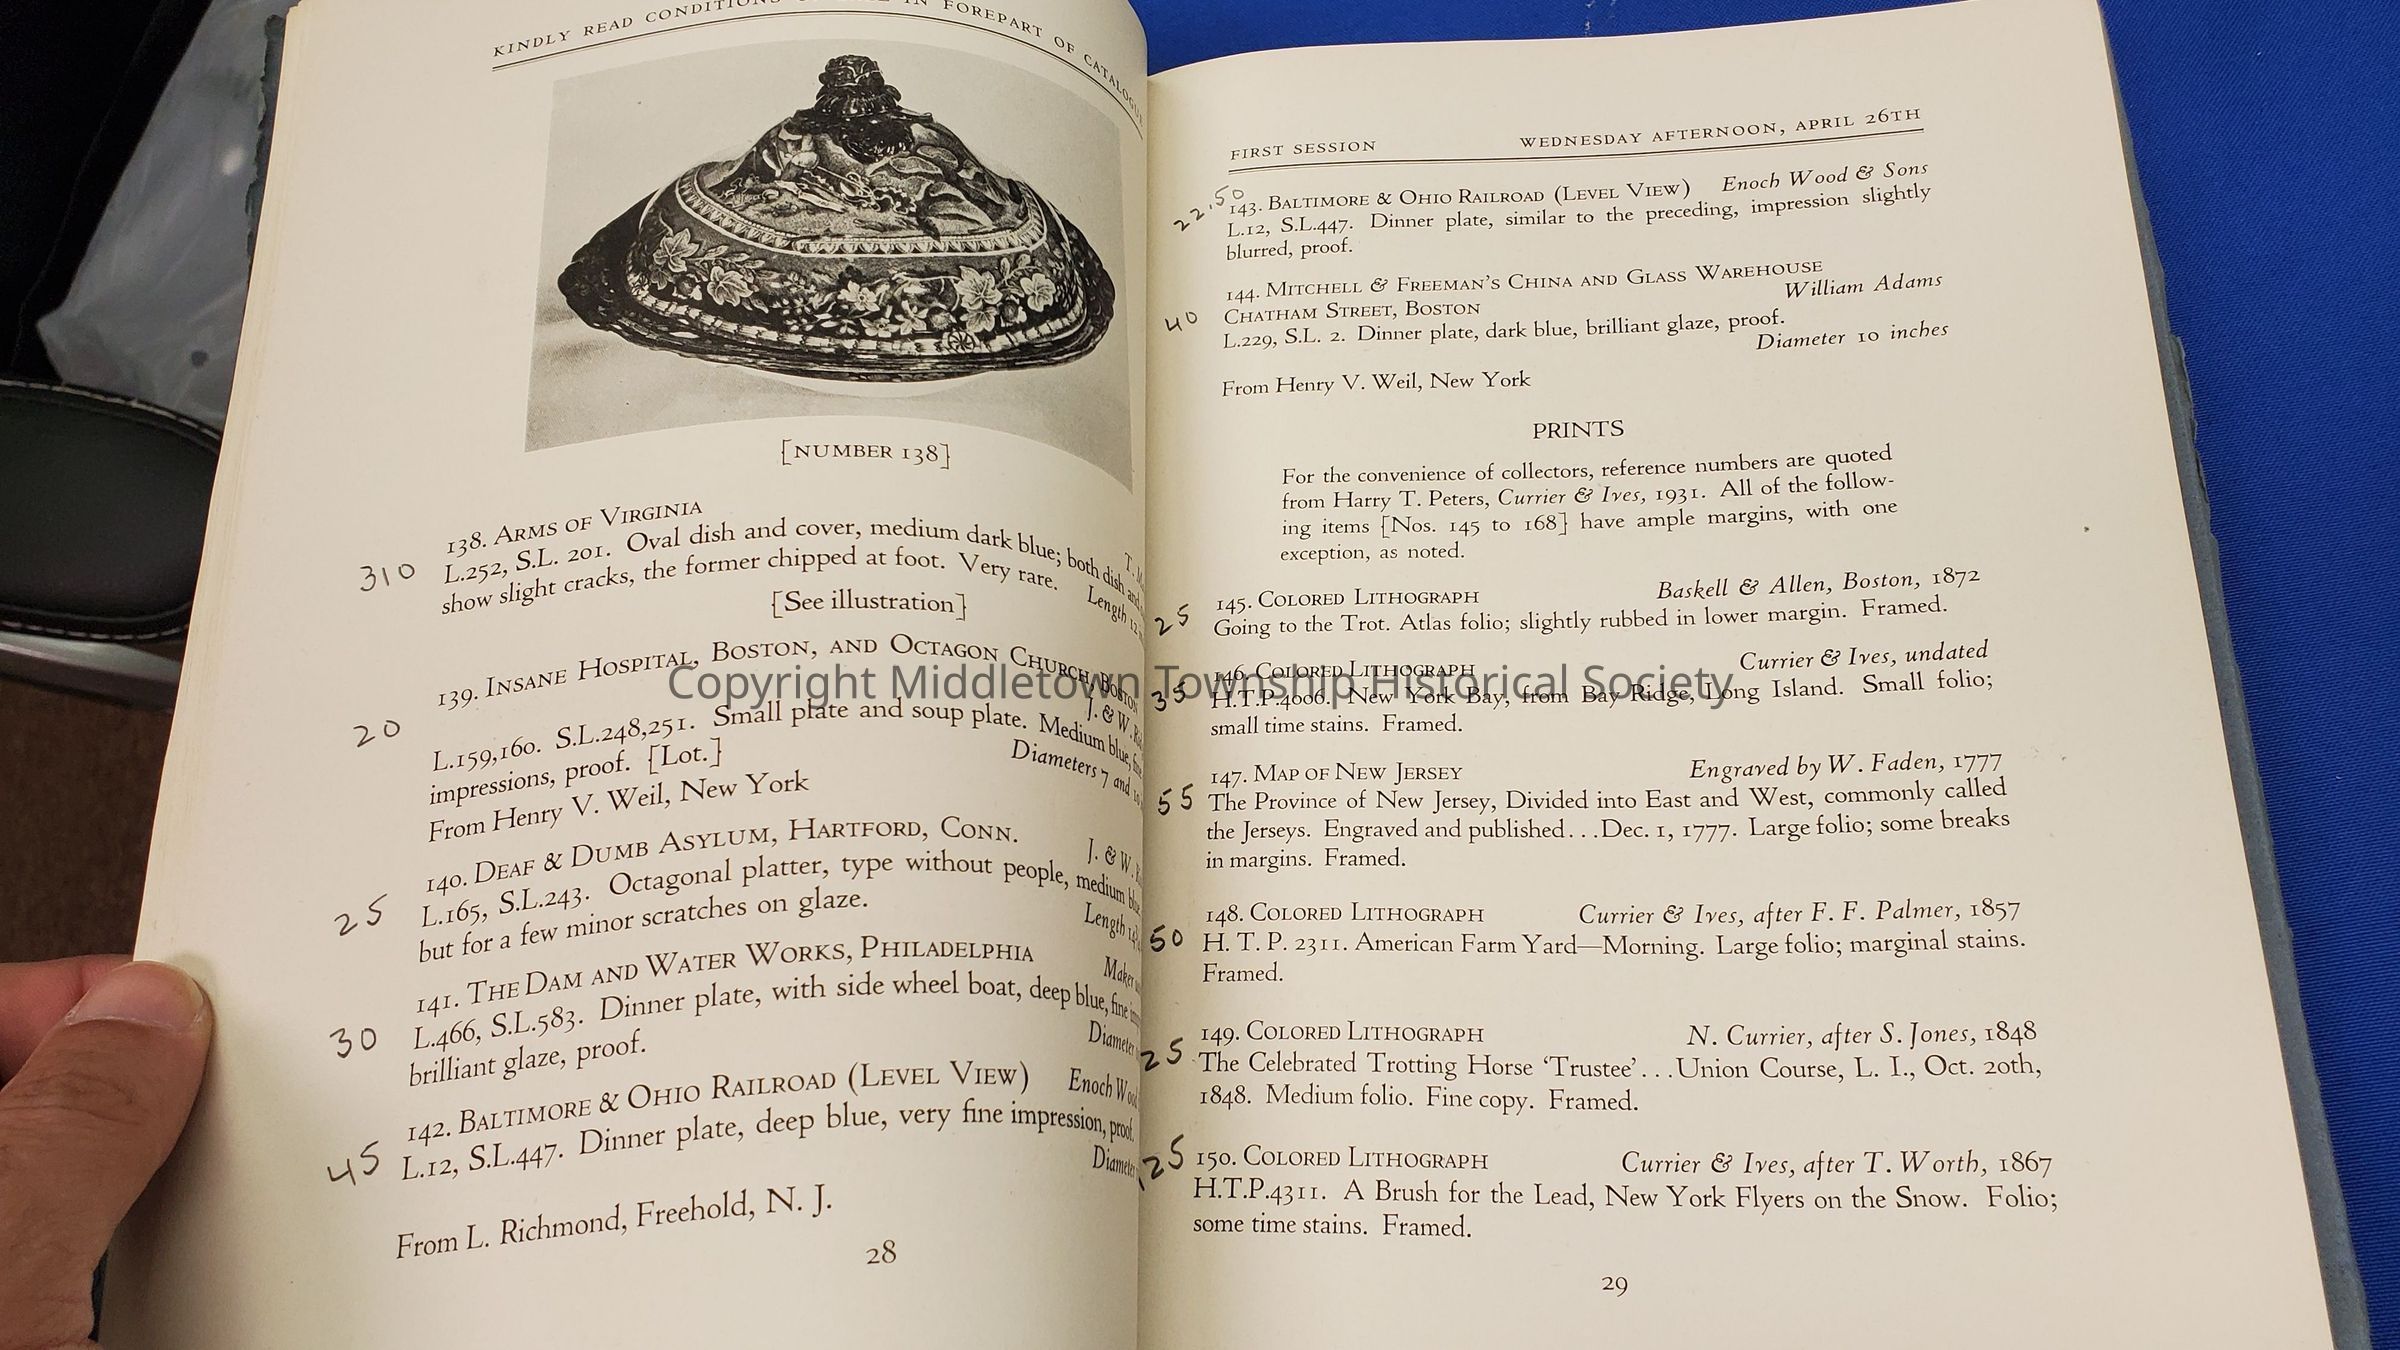 KINDLY READ CONDITIONS IN FOREPART OF CATALOGUE
[NUMBER 138]
138. ARMS OF VIRGINIA
310
L.252, S.L. 201. Oval dish and cover, medium dark blue; both dish and
show slight cracks, the former chipped at foot. Very rare. Length 12
[See illustration]
139. INSANE HOSPITAL, BOSTON, AND OCTAGON CHURCH, BOSTON
J. & W.
20
L.159,160. S.L.248,251. Small plate and soup plate. Medium blue, fine
impressions, proof. [Lot.] Diameters 7 and 10
From Henry V. Weil, New York
140. DEAF & DUMB ASYLUM, HARTFORD, CONN. J. & W.
25
L.165, S.L.243. Octagonal platter, type without people, medium blue,
but for a few minor scratches on glaze. Length
141. THE DAM AND WATER WORKS, PHILADELPHIA Maker
30
L.466, S.L.583. Dinner plate, with side wheel boat, deep blue, fine
brilliant glaze, proof. Diameter
142. BALTIMORE & OHIO RAILROAD (LEVEL VIEW) Enoch Wood
45
L.12, S.L.447. Dinner plate, deep blue, very fine impression, proof.
Diameter
From L. Richmond, Freehold, N. J.
28
FIRST SESSION WEDNESDAY AFTERNOON, APRIL 26TH
22.50
143. BALTIMORE & OHIO RAILROAD (LEVEL VIEW) Enoch Wood & Sons
L.12, S.L.447. Dinner plate, similar to the preceding, impression slightly
blurred, proof.
144. MITCHELL & FREEMAN'S CHINA AND GLASS WAREHOUSE
CHATHAM STREET, BOSTON William Adams
40
L.229, S.L. 2. Dinner plate, dark blue, brilliant glaze, proof.
Diameter 10 inches
From Henry V. Weil, New York
PRINTS
For the convenience of collectors, reference numbers are quoted
from Harry T. Peters, Currier & Ives, 1931. All of the follow-
ing items [Nos. 145 to 168] have ample margins, with one
exception, as noted.
145. COLORED LITHOGRAPH Baskell & Allen, Boston, 1872
25
Going to the Trot. Atlas folio; slightly rubbed in lower margin. Framed.
146. COLORED LITHOGRAPH Currier & Ives, undated
35
H.T.P.4006. New York Bay, from Bay Ridge, Long Island. Small folio;
small time stains. Framed.
147. MAP OF NEW JERSEY Engraved by W. Faden, 1777
55
The Province of New Jersey, Divided into East and West, commonly called
the Jerseys. Engraved and published...Dec. 1, 1777. Large folio; some breaks
in margins. Framed.
148. COLORED LITHOGRAPH Currier & Ives, after F. F. Palmer, 1857
50
H. T. P. 2311. American Farm Yard—Morning. Large folio; marginal stains.
Framed.
149. COLORED LITHOGRAPH N. Currier, after S. Jones, 1848
25
The Celebrated Trotting Horse 'Trustee'...Union Course, L. I., Oct. 20th,
1848. Medium folio. Fine copy. Framed.
150. COLORED LITHOGRAPH Currier & Ives, after T. Worth, 1867
H.T.P.4311. A Brush for the Lead, New York Flyers on the Snow. Folio;
some time stains. Framed.
29
Copyright Middletown Township Historical Society